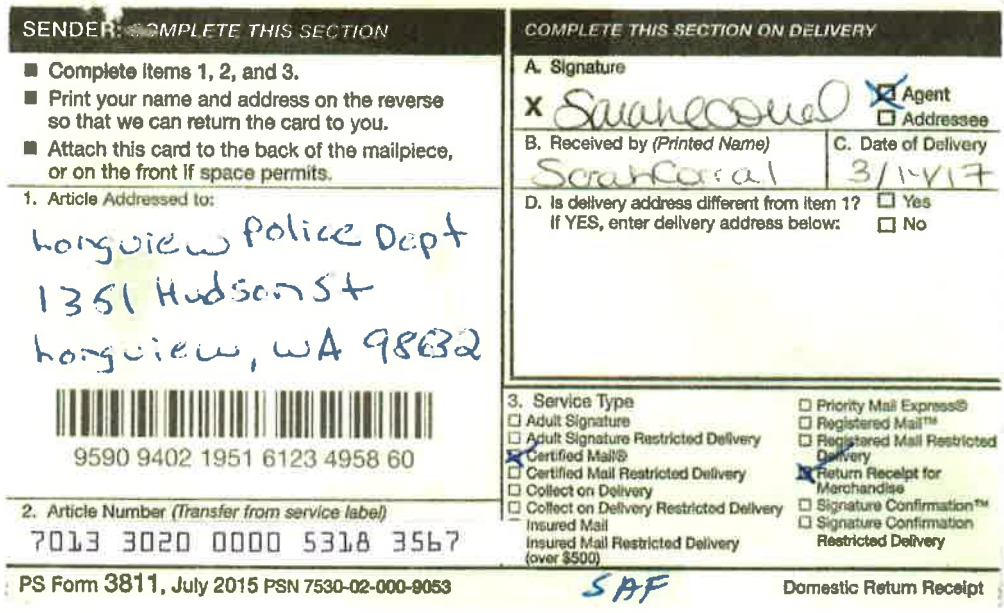 SENDER: COMPLETE THIS SECTION
■ Complete items 1, 2, and 3.
■ Print your name and address on the reverse
so that we can return the card to you.
■ Attach this card to the back of the mailpiece,
or on the front if space permits.
1. Article Addressed to:
Longview Police Dept
1351 Hudson St
Longview, WA 98632
9590 9402 1951 6123 4958 60
2. Article Number (Transfer from service label)
7013 3020 0000 5318 3567
COMPLETE THIS SECTION ON DELIVERY
A. Signature
X
☒ Agent
☐ Addressee
B. Received by (Printed Name)
Sarah
C. Date of Delivery
D. Is delivery address different from item 1? ☐ Yes
If YES, enter delivery address below: ☐ No
3. Service Type
☐ Adult Signature
☐ Adult Signature Restricted Delivery
☒ Certified Mail®
☐ Certified Mail Restricted Delivery
☐ Collect on Delivery
☐ Collect on Delivery Restricted Delivery
Insured Mail
Insured Mail Restricted Delivery
(over $500)
☐ Priority Mail Express®
☐ Registered Mail™
☐ Registered Mail Restricted
Delivery
☒ Return Receipt for
Merchandise
☐ Signature Confirmation™
☐ Signature Confirmation
Restricted Delivery
PS Form 3811, July 2015 PSN 7530-02-000-9053
SAF
Domestic Return Receipt